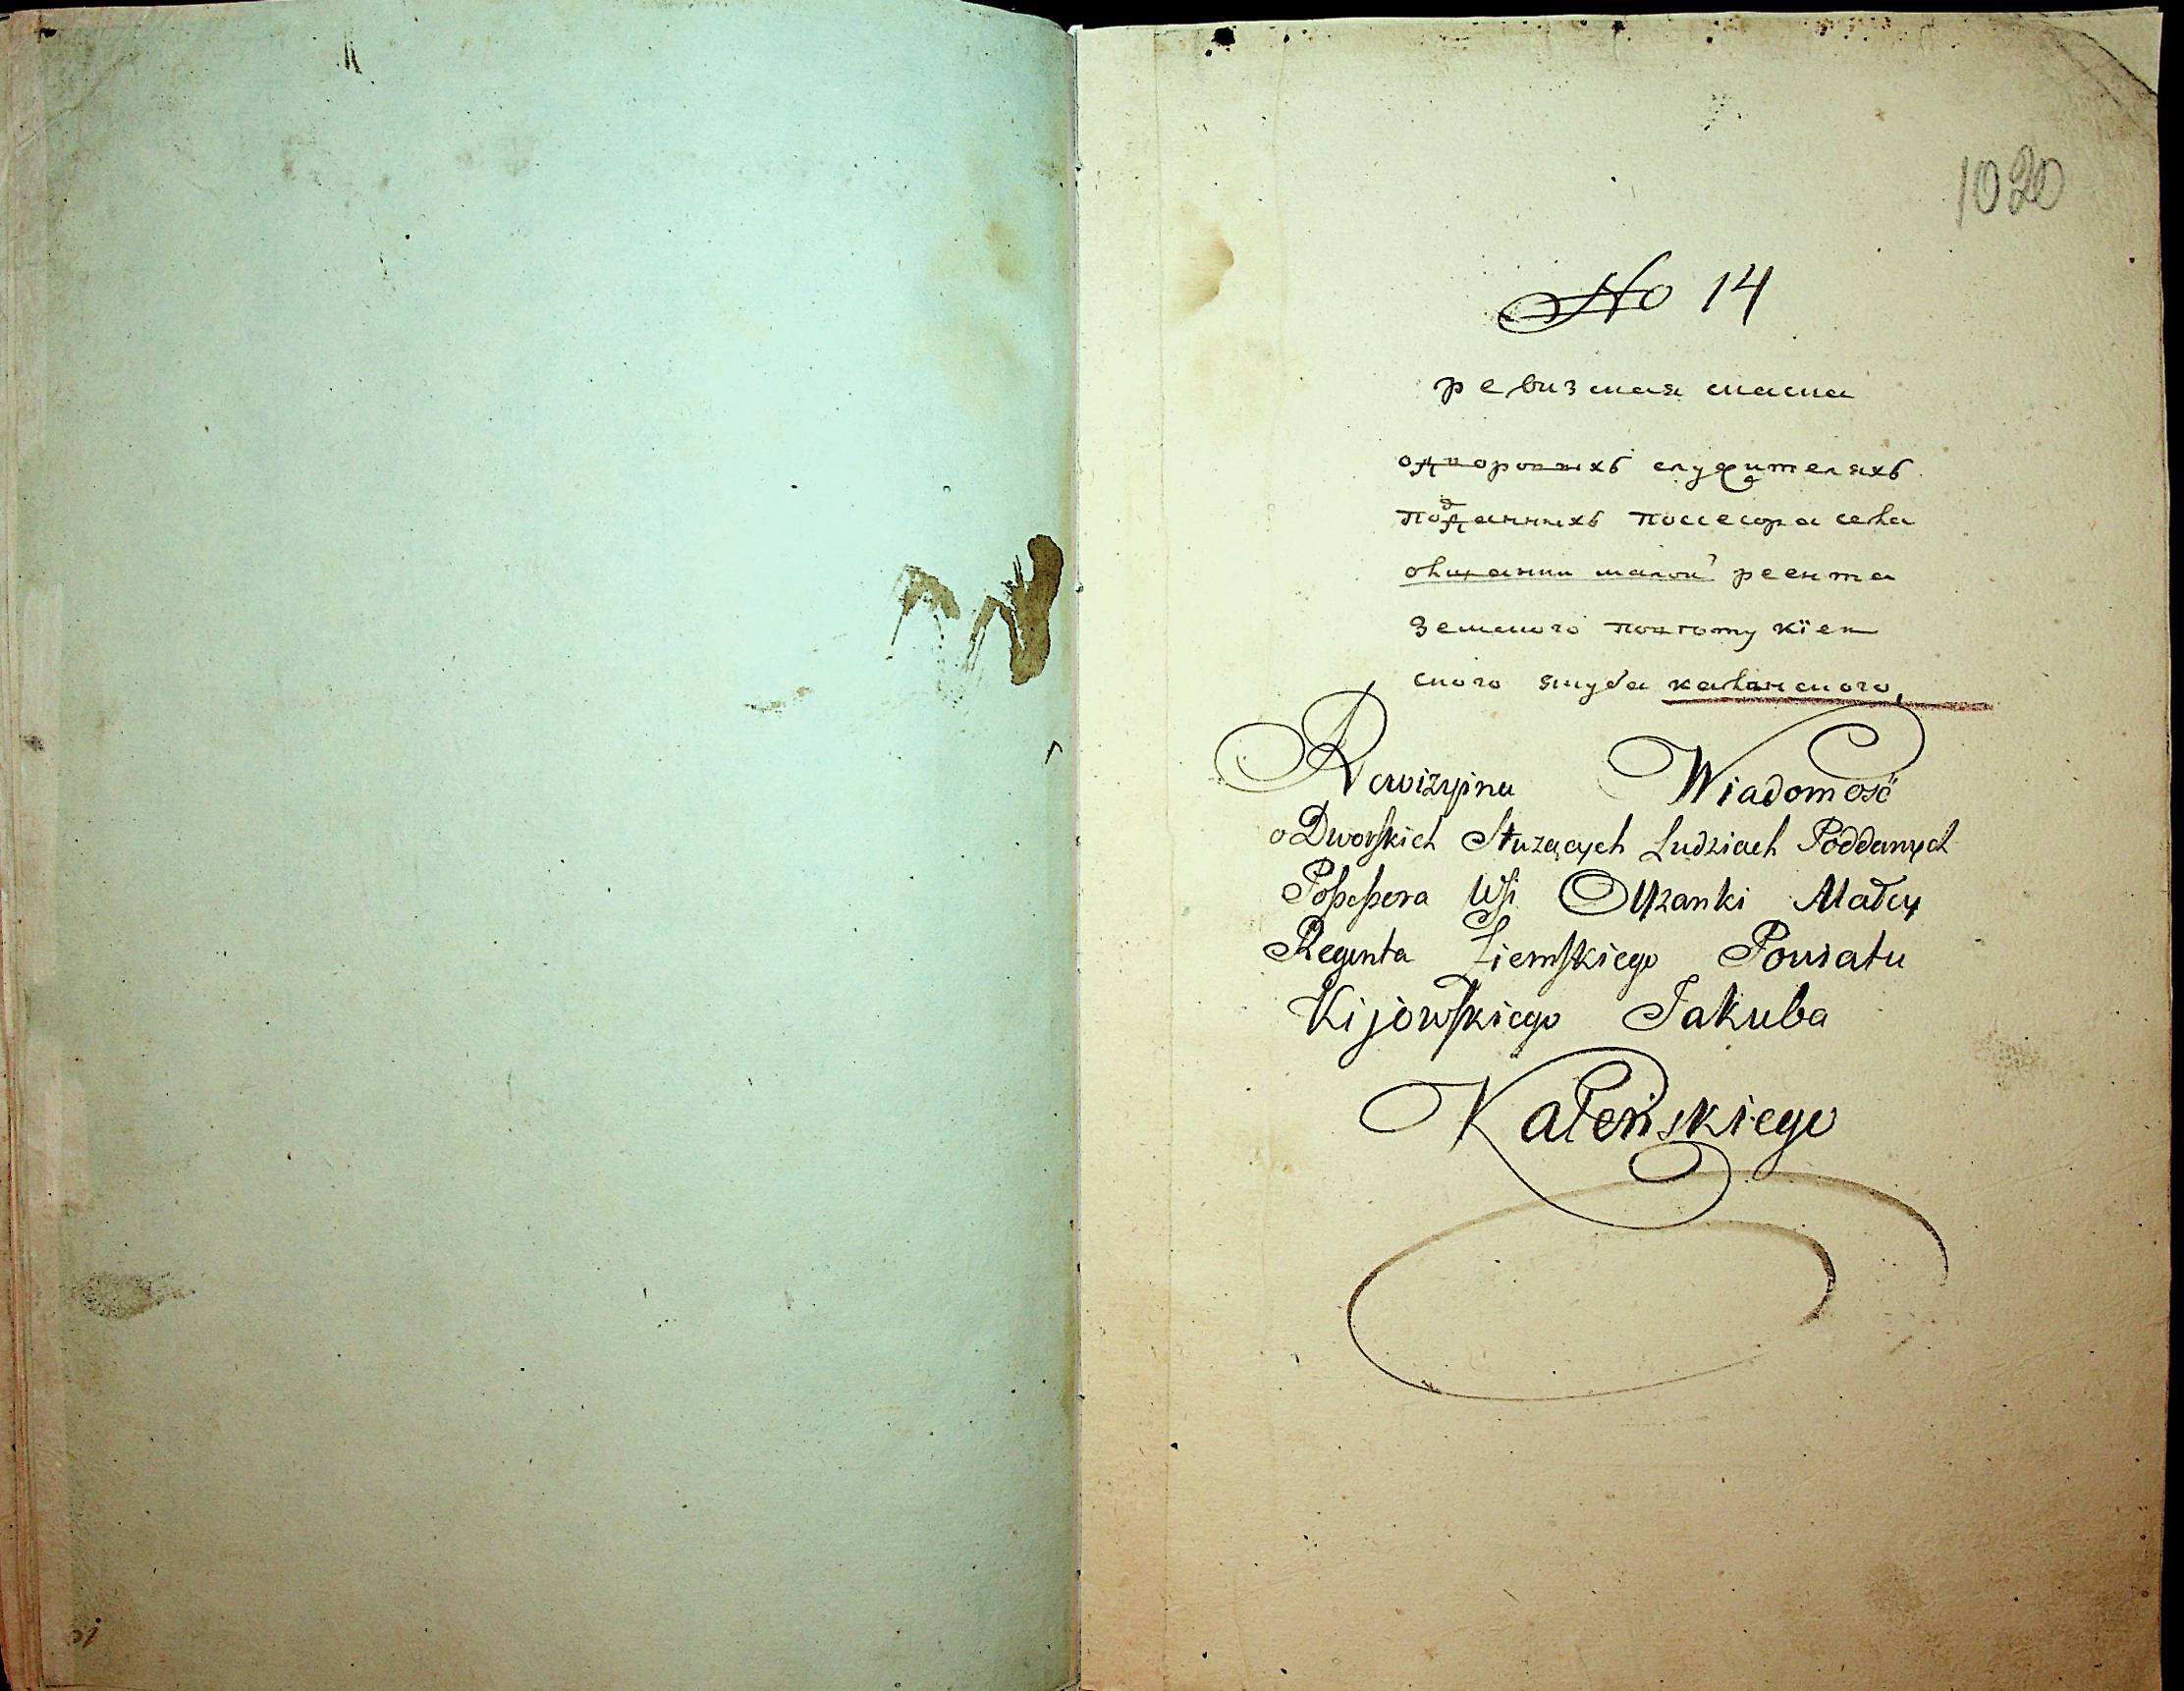 1020
No 14
ревизкая скаска
одворовыхъ служителяхъ
подданныхъ посесора села
ольшанки малой реента
земского повтоту кіев
ского якуба каленского,
Rewizyina Wiadomość
o Dworskich Służących Ludziach Poddanych
Possessora Wsi Olszanki Małey
Regenta Ziemskiego Powiatu
Kijowskiego Jakuba
Kaleńskiego